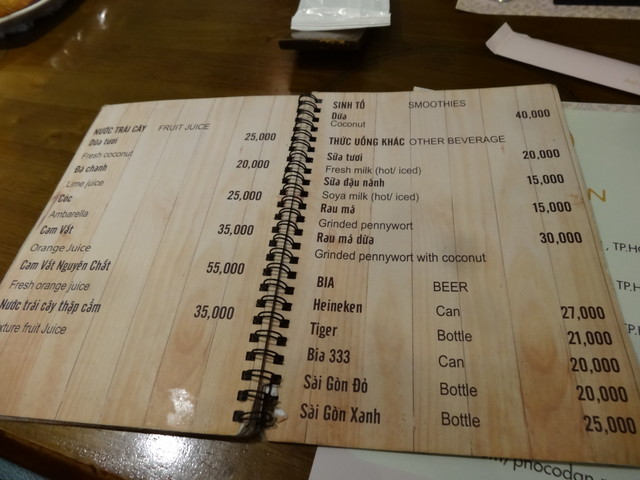 NƯỚC TRÁI CÂY FRUIT JUICE
Dừa tươi 25,000
Fresh coconut
Đá chanh 20,000
Lime juice
Cóc 25,000
Ambarella
Cam Vắt 35,000
Orange Juice
Cam Vắt Nguyên Chất 55,000
Fresh orange juice
Nước trái cây thập cẩm 35,000
xture fruit Juice
SINH TỐ SMOOTHIES
Dừa 40,000
Coconut
THỨC UỐNG KHÁC OTHER BEVERAGE
Sữa tươi 20,000
Fresh milk (hot/ iced)
Sữa đậu nành 15,000
Soya milk (hot/ iced)
Rau má 15,000
Grinded pennywort
Rau má dừa 30,000
Grinded pennywort with coconut
BIA BEER
Heineken Can 27,000
Tiger Bottle 21,000
Bia 333 Can 20,000
Sài Gòn Đỏ Bottle 20,000
Sài Gòn Xanh Bottle 25,000
N
, TP.H
TP.H
TP.H
/phocodan